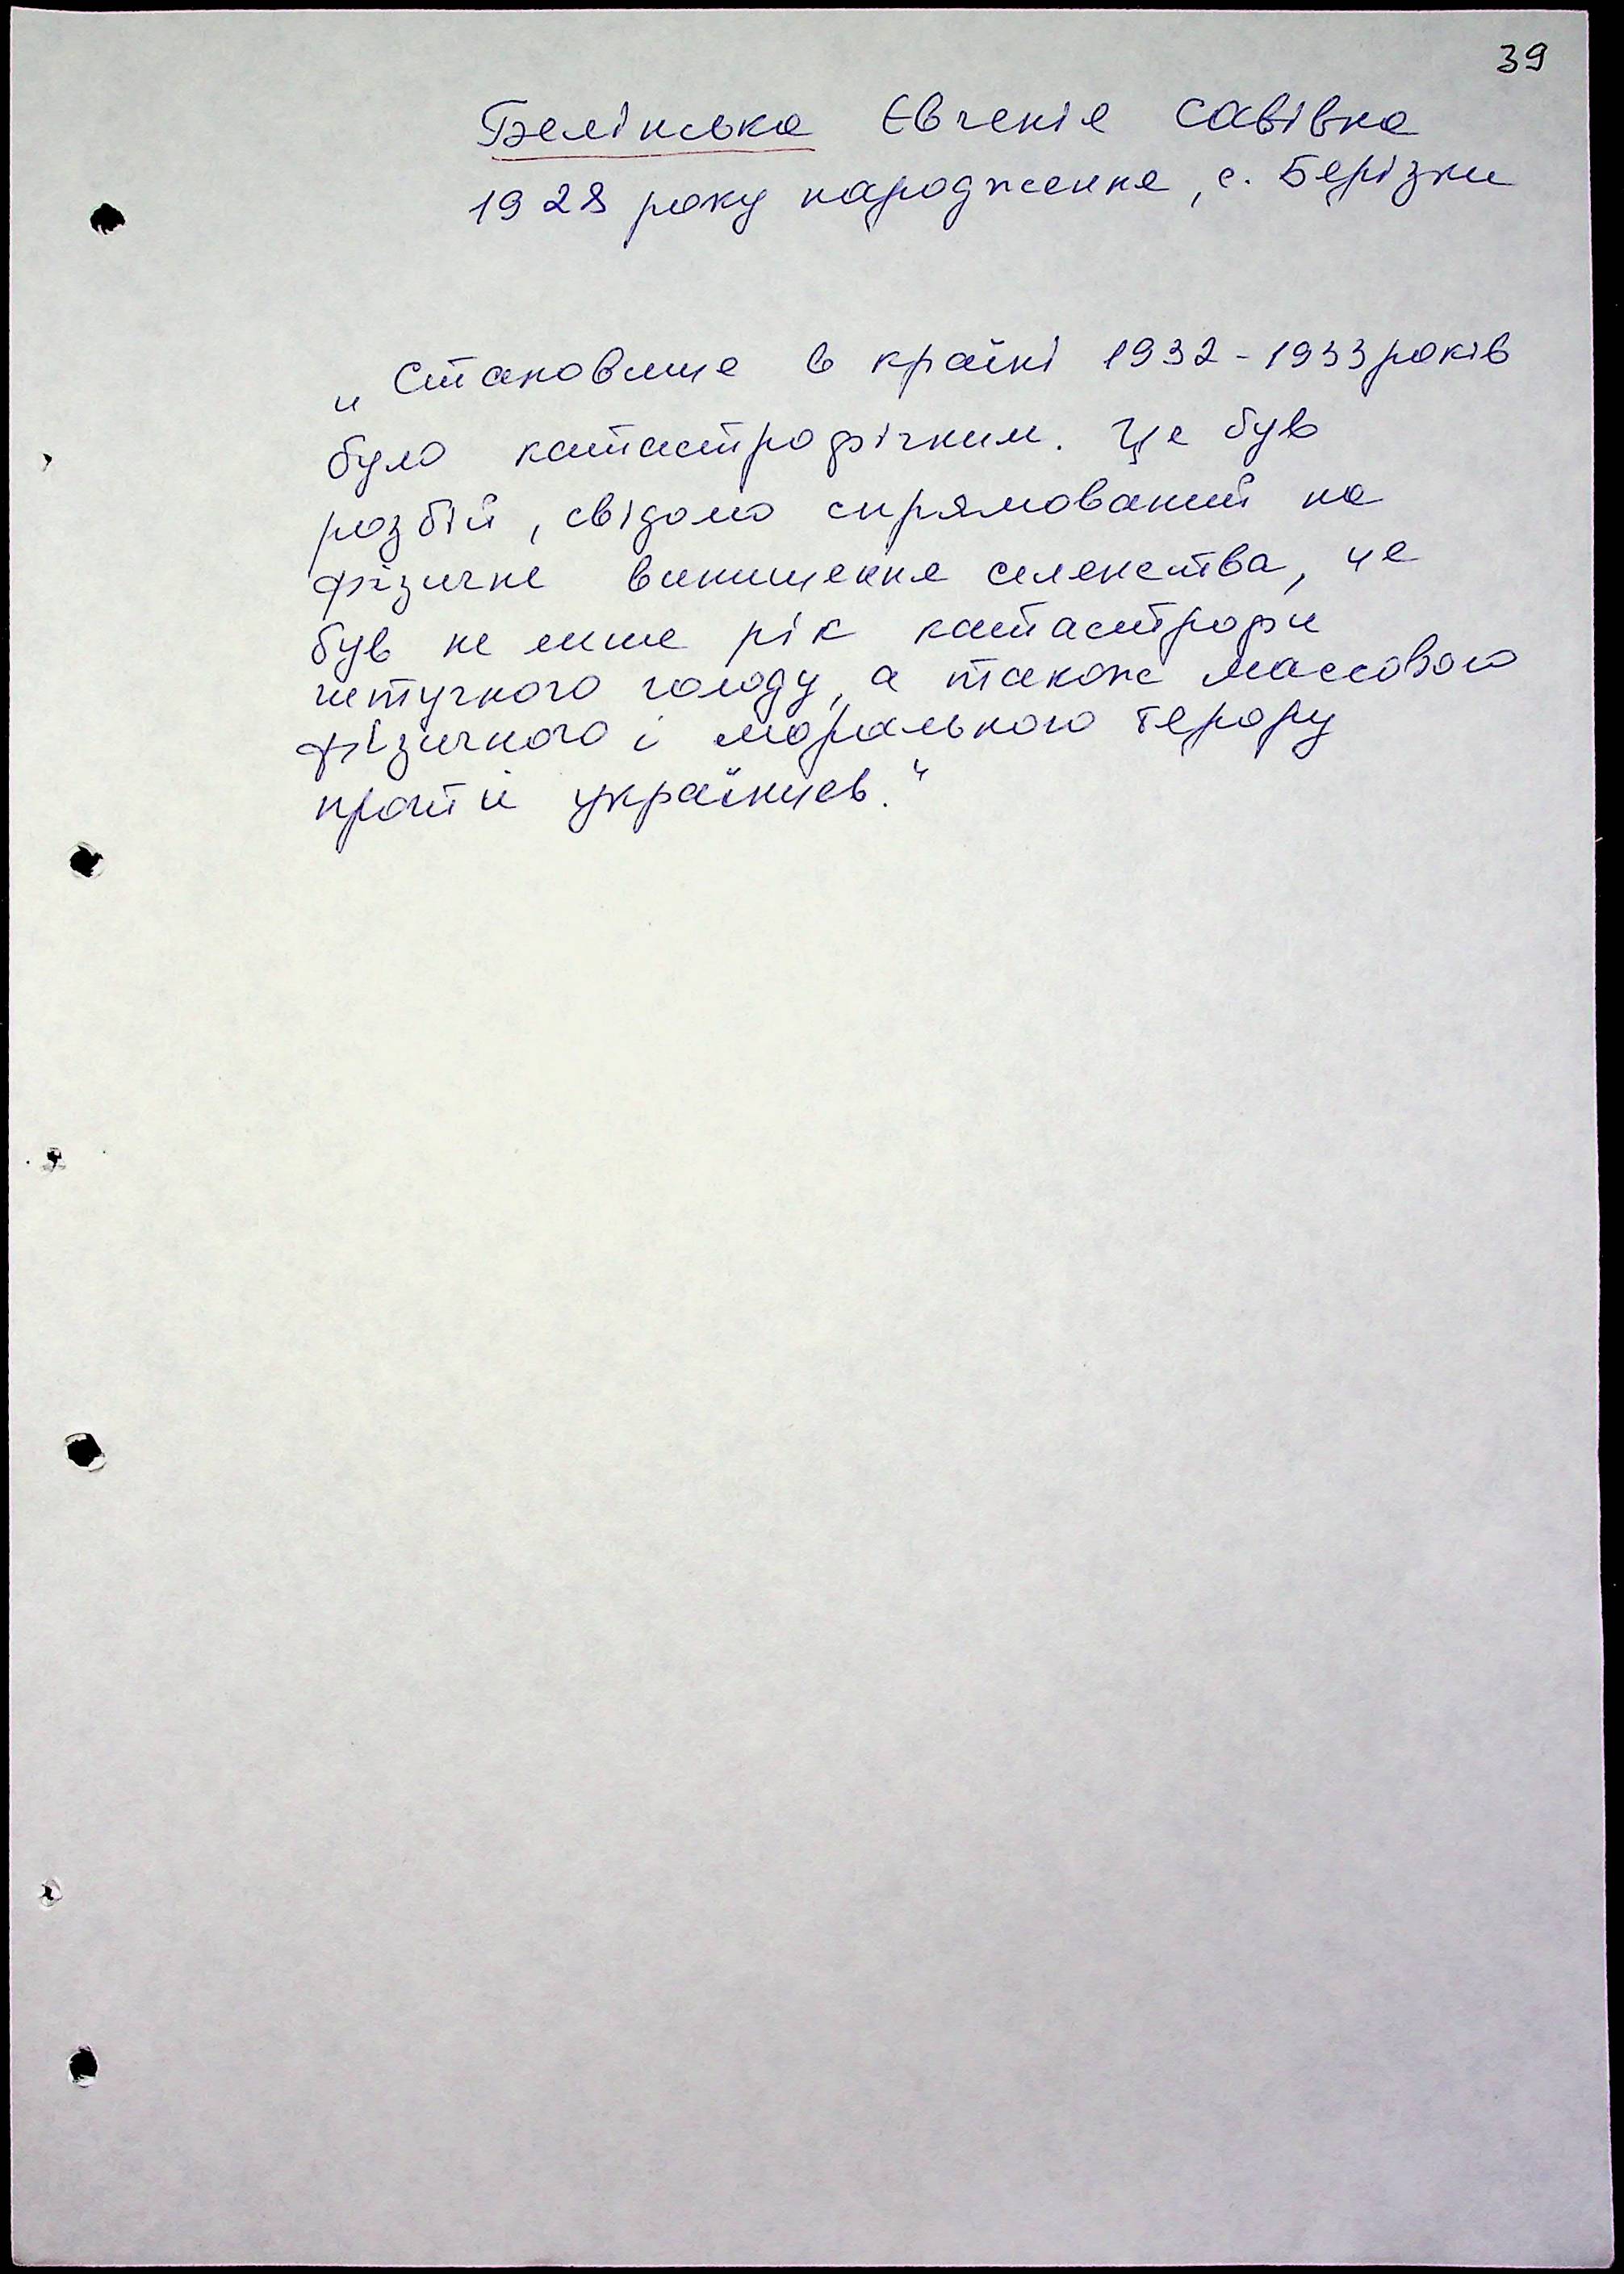 39
Белінська Євгенія Савівна
1928 року народження, с. Берізки
„Становище в країні 1932-1933 років
було катастрофічним. Це був
розбій, свідомо спрямований на
фізичне винищення селянства, це
був не лише рік катастрофи
штучного голоду, а також массового
фізичного і морального терору
проти українцев."